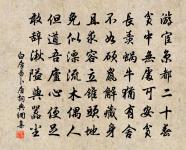 游宦京都二十春
貧中無處可安貧
長羨蝸牛猶有舍
不如碩鼠解藏身
且求容立錐頭地
免似漂流木偶人
但道吾廬心便足
敢辭湫隘與囂塵
白居易卜居詩